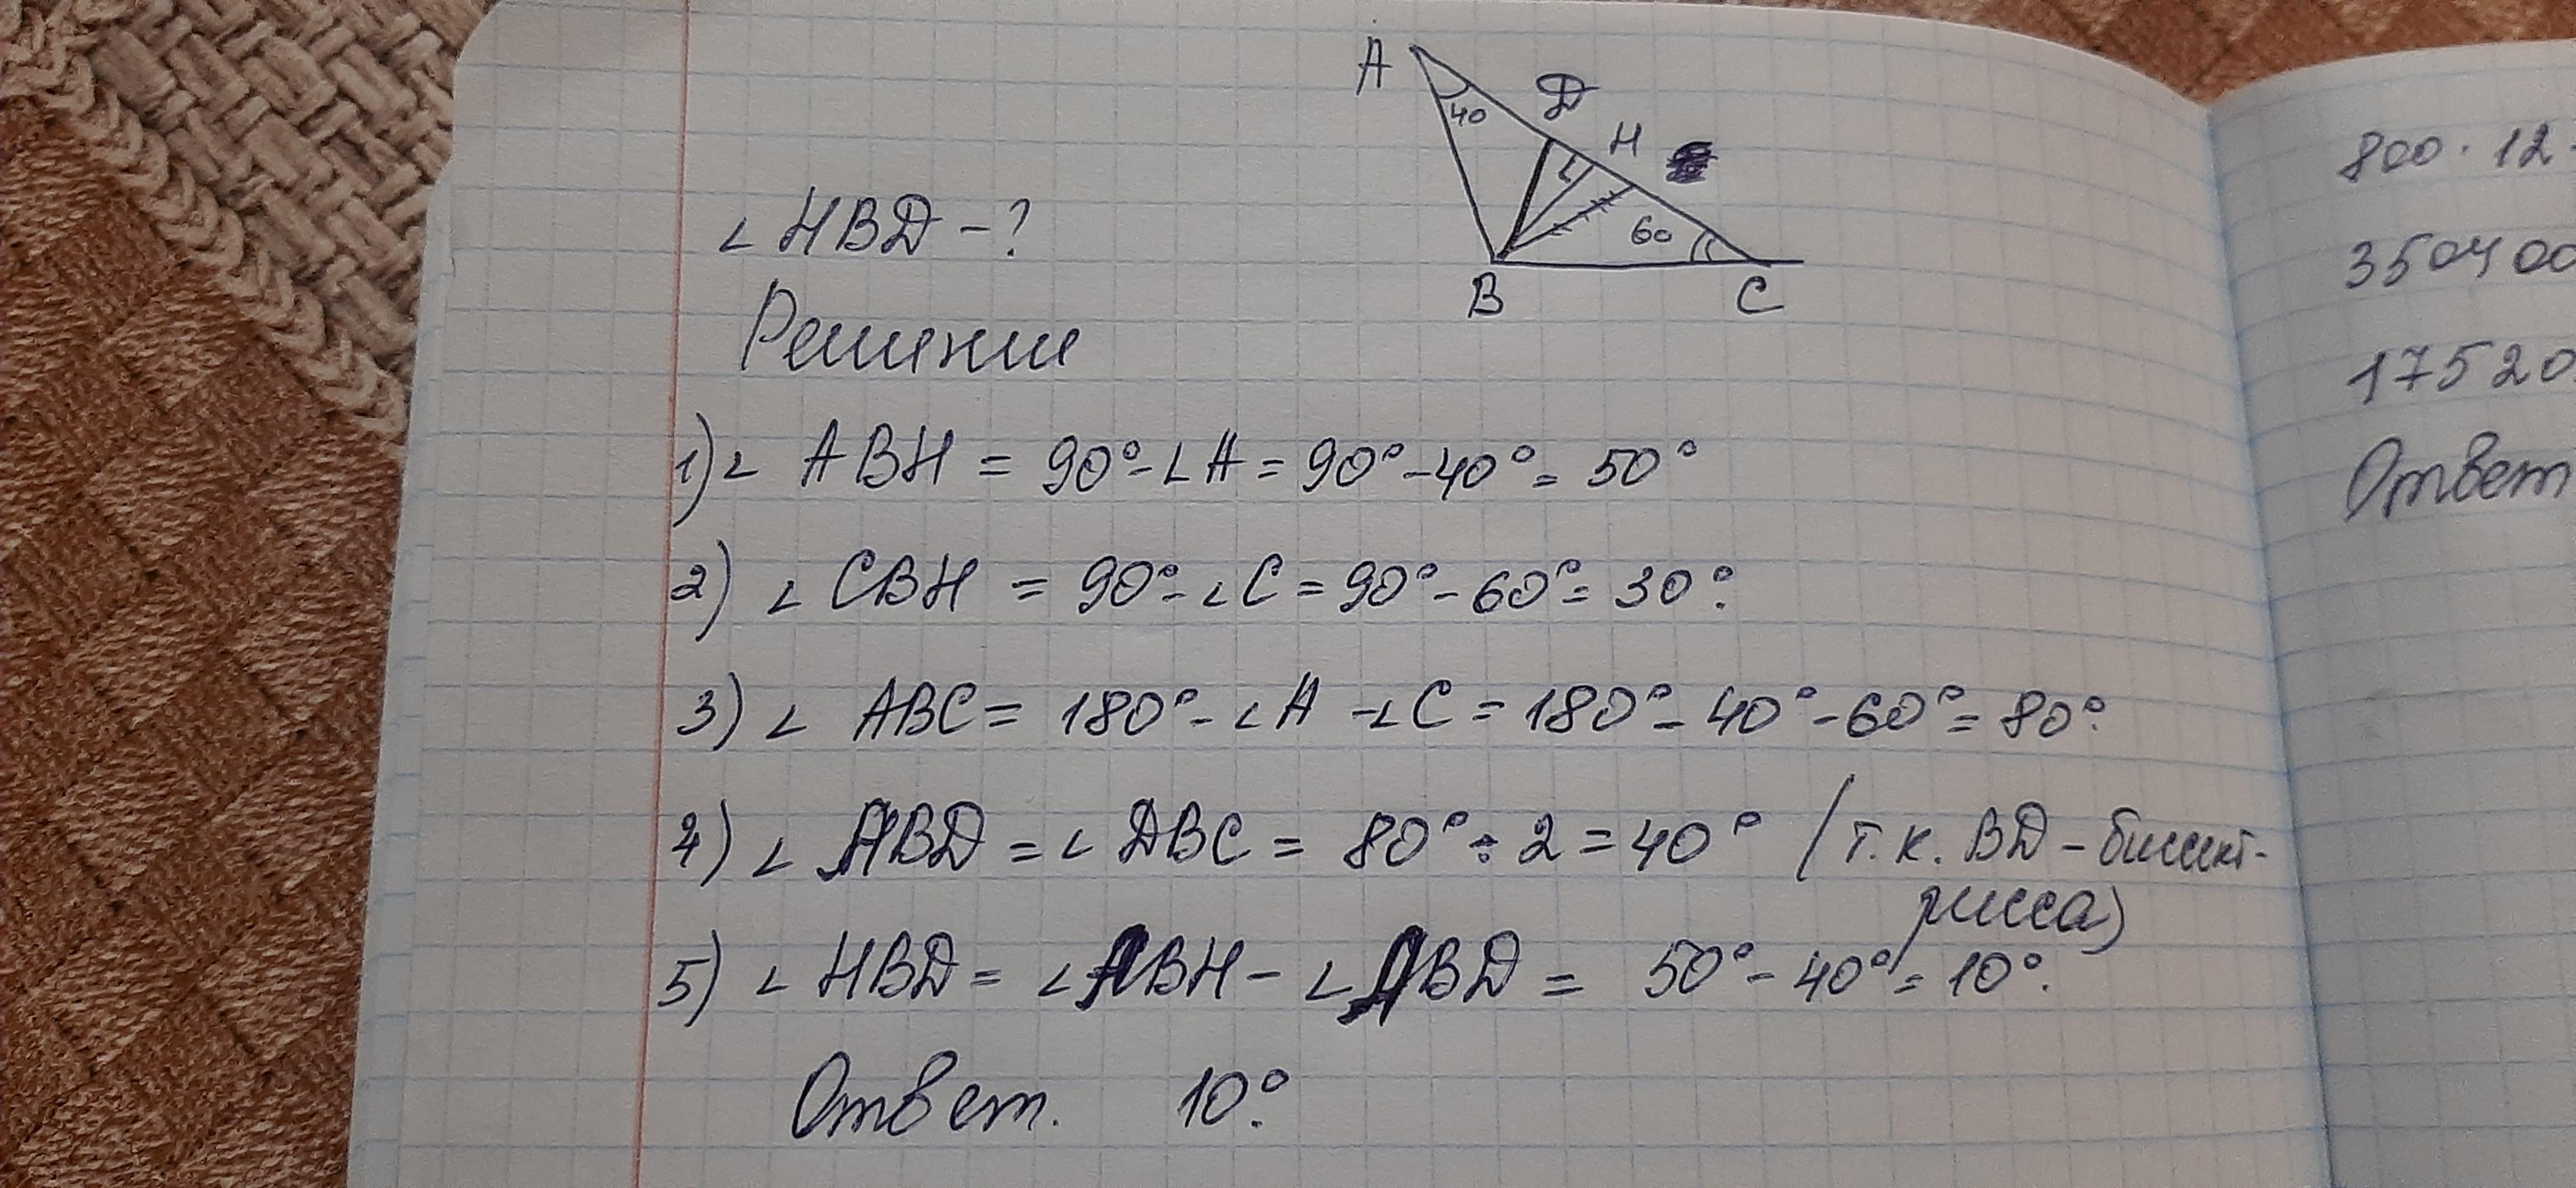 A
40
D
H
60
B
C
∠HBD - ?
Решение
1) ∠ ABH = 90° - ∠A = 90° - 40° = 50°
2) ∠ CBH = 90° - ∠C = 90° - 60° = 30°.
3) ∠ ABC = 180° - ∠A - ∠C = 180° - 40° - 60° = 80°.
4) ∠ ABD = ∠ DBC = 80° ÷ 2 = 40° (т.к. BD - биссект-
рисса)
5) ∠ HBD = ∠ABH - ∠ABD = 50° - 40° = 10°.
Ответ. 10°.
800 · 12
350400
17520
Ответ